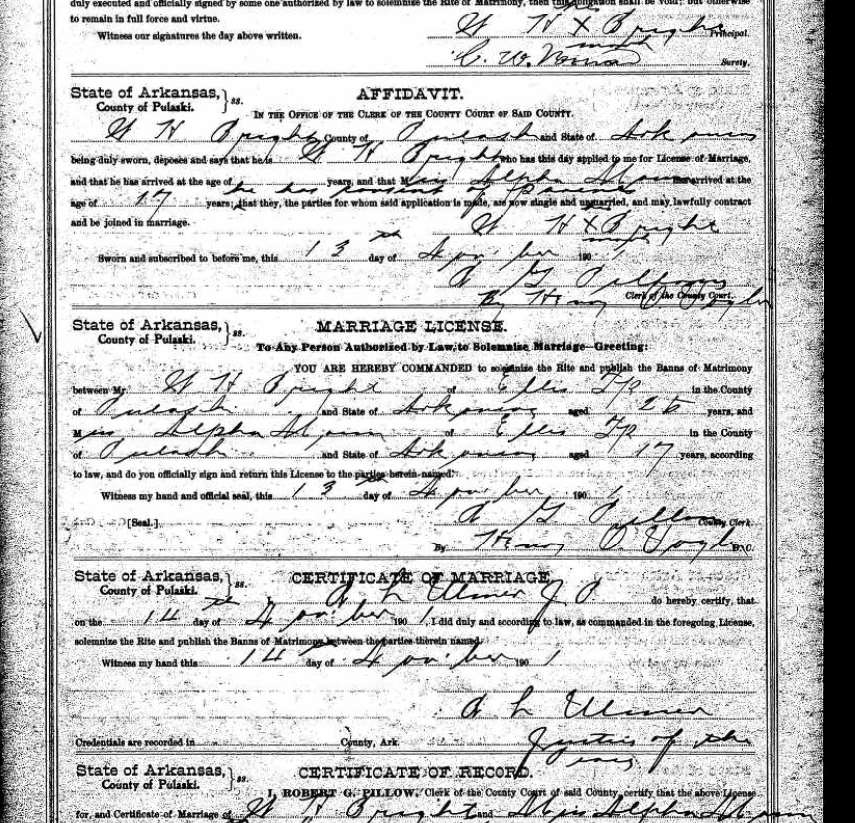 duly executed and officially signed by some one authorized by law to solemnize the Rite of Matrimony, then this obligation shall be void; but otherwise
to remain in full force and virtue.
W H X Bright Principal.
Witness our signatures the day above written.
C. W. Surety.
State of Arkansas,
County of Pulaski. } ss.
AFFIDAVIT.
IN THE OFFICE OF THE CLERK OF THE COUNTY COURT OF SAID COUNTY.
W H Bright County of Pulaski and State of Arkansas
being duly sworn, deposes and says that he is W H Bright who has this day applied to me for License of Marriage,
and that he has arrived at the age of years, and that Miss Alpha has arrived at the
he has consent of parents
age of 17 years; that they, the parties for whom said application is made, are now single and unmarried, and may lawfully contract
and be joined in marriage.
W H X Bright
mark
Sworn and subscribed to before me, this 13th day of November 1901
R G Pillow
Clerk of the County Court.
By Henry O
State of Arkansas,
County of Pulaski. } ss.
MARRIAGE LICENSE.
To Any Person Authorized by Law to Solemnize Marriage—Greeting:
YOU ARE HEREBY COMMANDED to solemnize the Rite and publish the Banns of Matrimony
between Mr. W H Bright of Ellis Tp in the County
of Pulaski and State of Arkansas aged 26 years, and
Miss Alpha of Ellis Tp in the County
of Pulaski and State of Arkansas aged 17 years, according
to law, and do you officially sign and return this License to the parties herein named.
Witness my hand and official seal, this 13th day of November 1901
[Seal.]
R G Pillow County Clerk.
By Henry O D.C.
State of Arkansas,
County of Pulaski. } ss.
CERTIFICATE OF MARRIAGE
L Ulmer J P do hereby certify, that
on the 14th day of November 1901, I did duly and according to law, as commanded in the foregoing License,
solemnize the Rite and publish the Banns of Matrimony between the parties therein named.
Witness my hand this 14 day of November 1901
L Ulmer
Justice of the
Peace
Credentials are recorded in County, Ark.
State of Arkansas,
County of Pulaski. } ss.
CERTIFICATE OF RECORD.
I, ROBERT G. PILLOW, Clerk of the County Court of said County, certify that the above License
for, and Certificate of Marriage of W H Bright and Miss Alpha